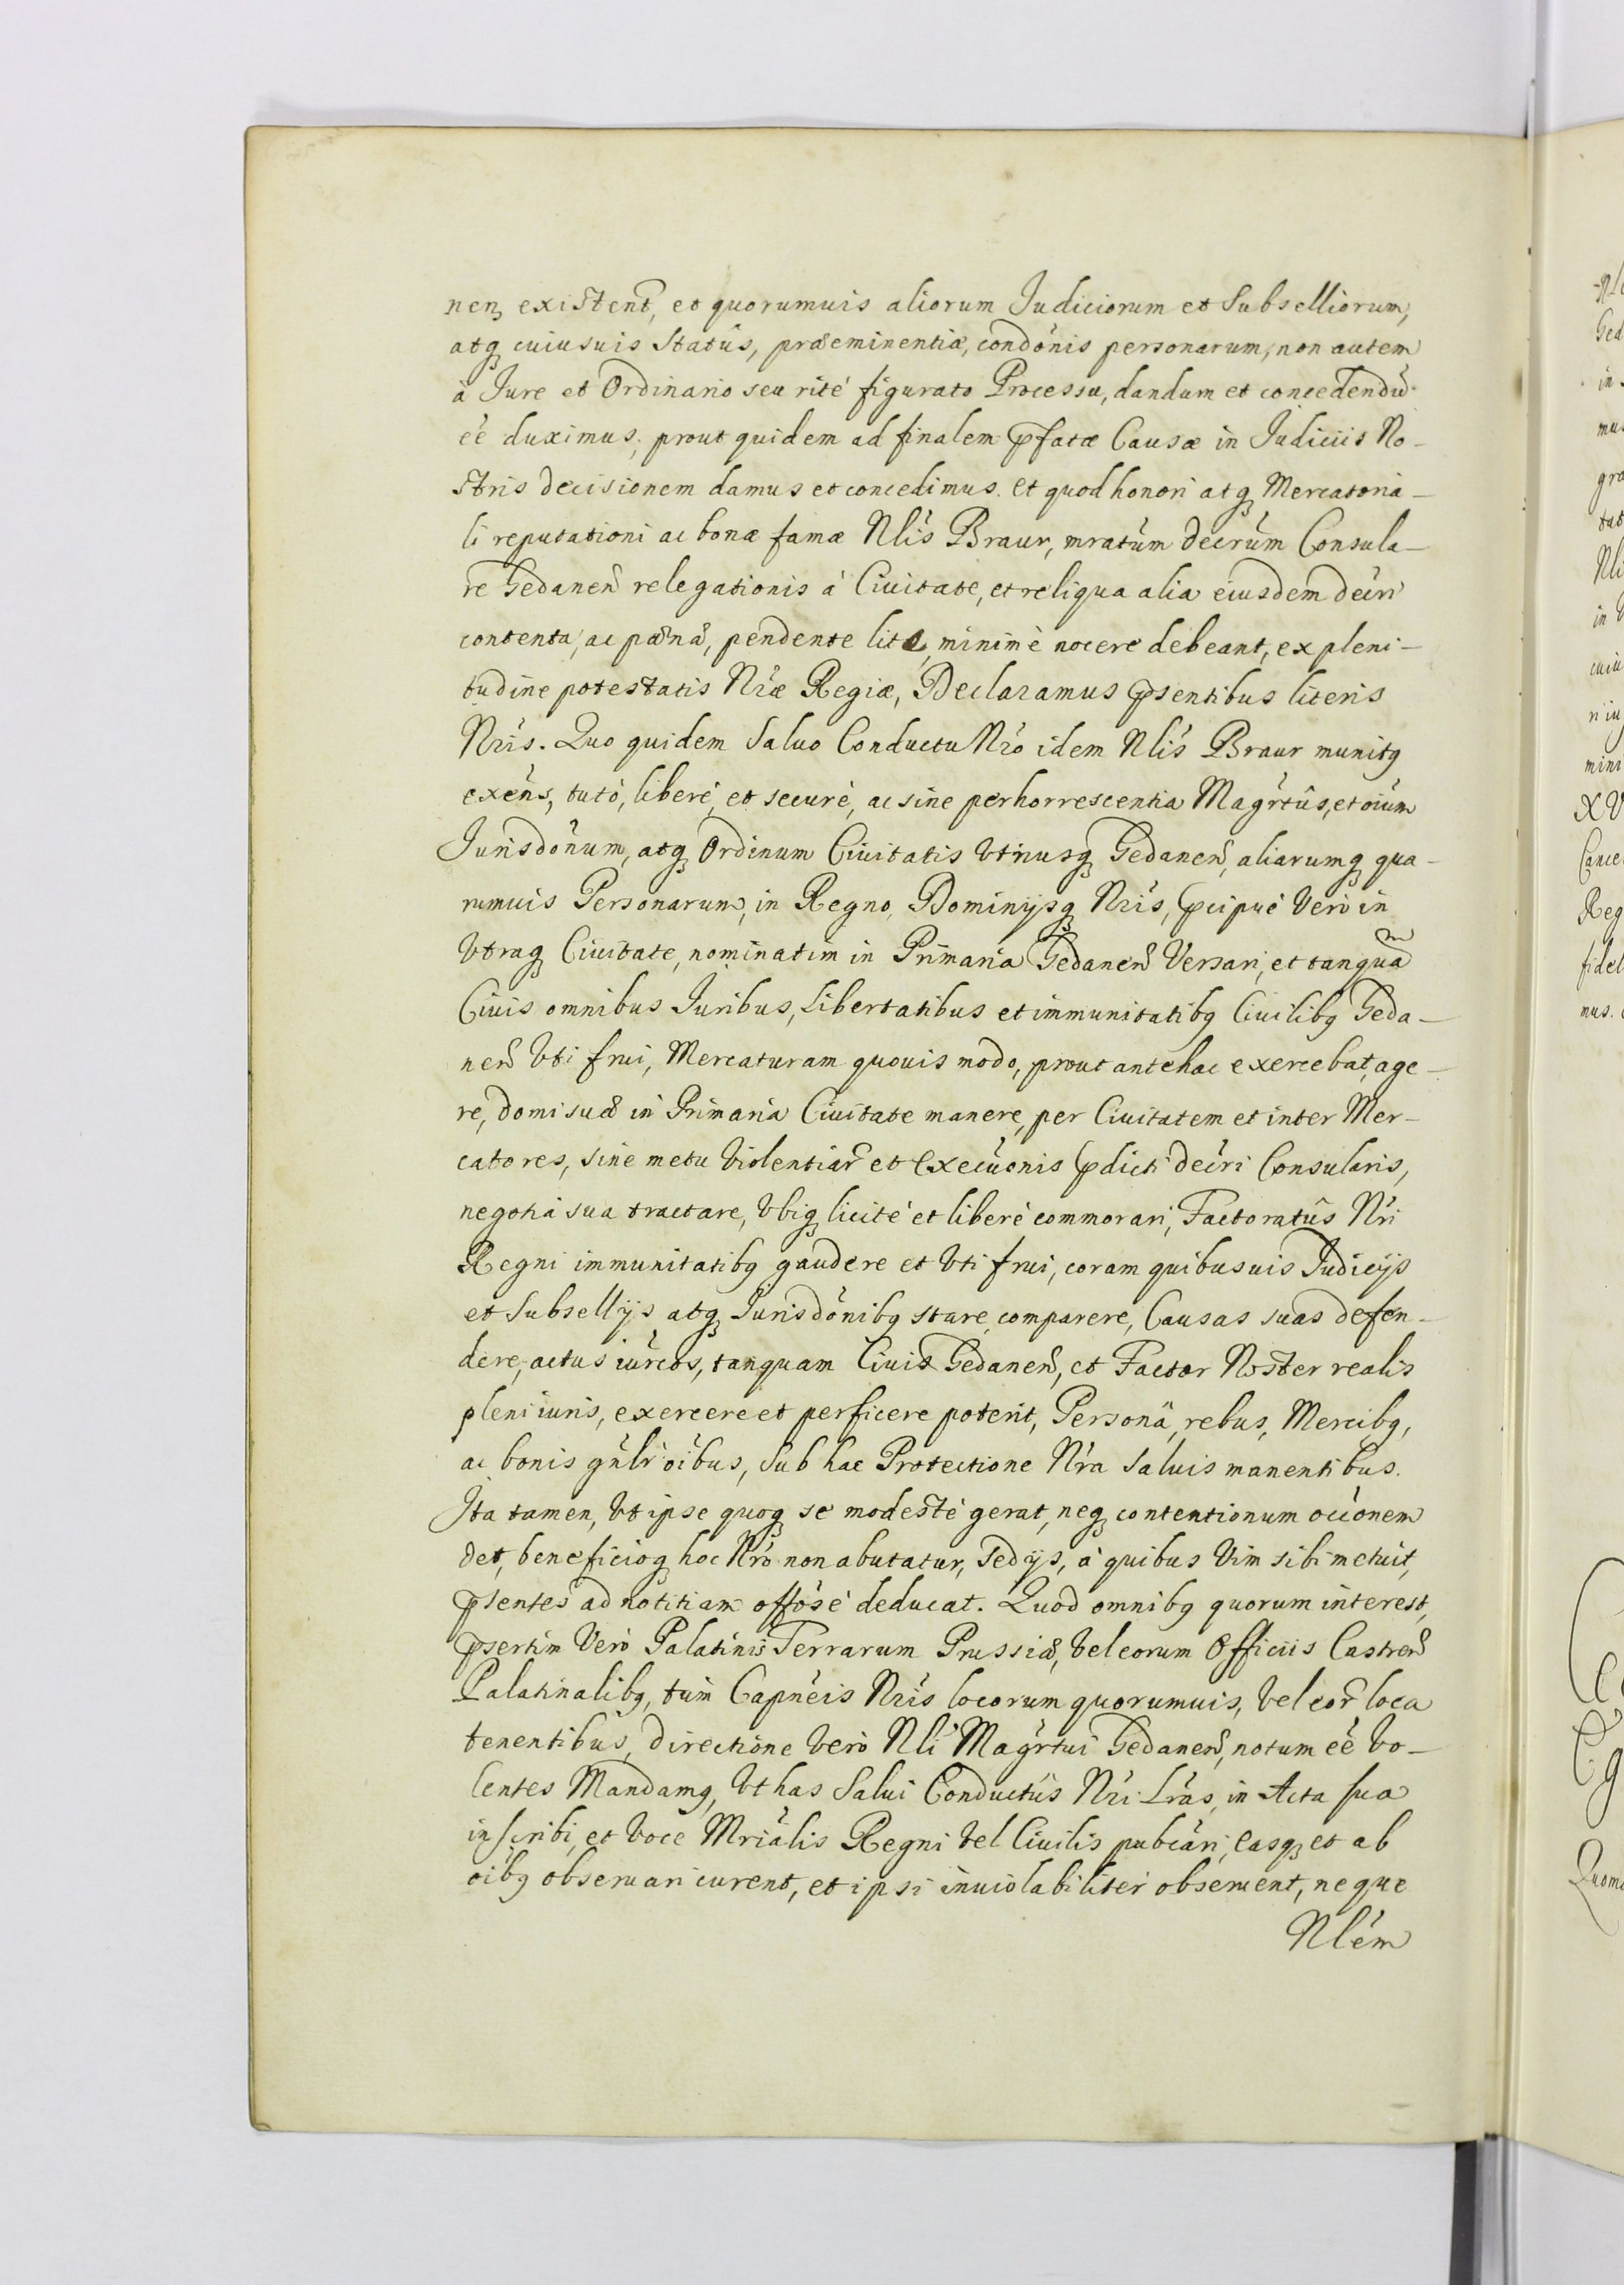 nen, existent, et quorumuis aliorum Judiciorum et Subselliorum,
atq cuiusuis Statûs, præeminentiæ, condónis personarum, non autem
à Jure et Ordinario seu rité figurato Processu, dandum et concedendũ
éé duximus, prout quidem ad finalem pfatæ Causæ in Judiciis No-
stris decisionem damus et concedimus. Et quod honori atq Mercatoria-
li reputationi ac bonæ famæ Nlis Braur, mratum decrum Consula-
re Gedanen relegationis à Ciuitate, et reliqua alia eiusdem decri
contenta, ac pœna, pendente lite, minimè nocere debeant, ex pleni-
tudine potestatis Nræ Regiæ, Declaramus psentibus literis
Nris. Quo quidem Saluo Conductu Nro idem Nlis Braur munitq
exens, tutò, liberé, et securè, ac sine perhorrescentia Magrtûs, et oium
Jurisdonum, atq Ordinum Ciuitatis Vtriusq Gedanen, aliarumq qua-
rumuis Personarum, in Regno, Dominijsq Nris, pcipuè Verò in
Vtraq Ciuitate, nominatim in Primaria Gedanen Versari, et tanquam
Ciuis omnibus Juribus, Libertatibus et immunitatibq Ciuilibq Geda-
nen Vti frui, Mercaturam quouis modo, prout antehac exercebat, age-
re, domi suæ in Primaria Ciuitate manere, per Ciuitatem et inter Mer-
catores, sine metu Violentiar et Execuonis pdicti decri Consularis,
negotia sua tractare, Vbiq licitè et liberè commorari, Factoratûs Nri
Regni immunitatibq gaudere et Vti frui, coram quibusuis Judicijs
et Subsellijs atq Jurisdonibq stare, comparere, Causas suas defen-
dere, actus iurcos, tanquam Ciuis Gedanen, et Factor Noster realis
pleni iuris, exercere et perficere poterit, Personâ, rebus, Mercibq,
ac bonis gnlr oibus, Sub hac Protectione Nra Saluis manentibus.
Ita tamen, Vt ipse quoq se modestè gerat, neq contentionum occonem
det, beneficioq hoc Nro non abutatur, Sed ijs, à quibus Vim sibi metuit,
psentes ad notitiam offosè deducat. Quod omnibq quorum interest,
psertim Verò Palatinis Terrarum Prussiæ, Vel eorum Officiis Castren
Palatinalibq, tum Capneis Nris locorum quorumuis, Vel eor loca
tenentibus, directione Verò Nli Magrtui Gedanen, notum éé Vo-
lentes Mandamq, Vt has Salui Conductûs Nri Lras, in Acta sua
inscribi, et Voce Mrialis Regni Vel Ciuilis pubcari, easq et ab
oibq obseruari curent, et ipsi inuiolabiliter obseruent, neque
Nlem